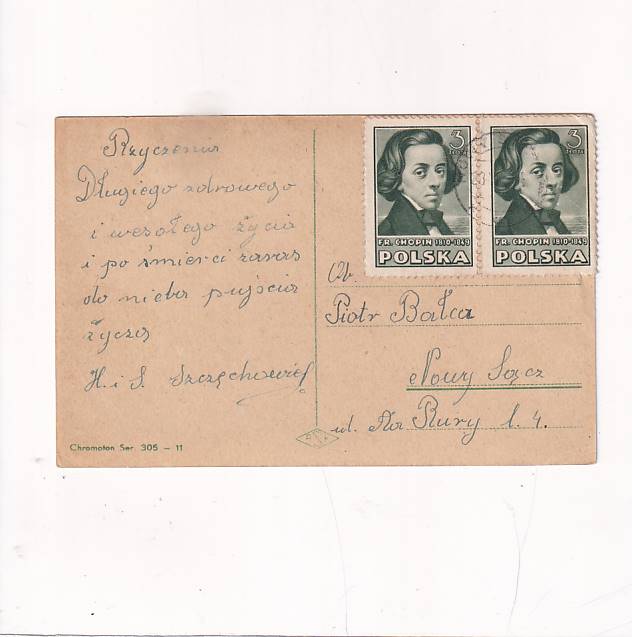 Rzyczenia
Długiego zdrowego
i wesołego życia
i po śmierci zaraz
do nieba pujścia
życzą
H. i S.
Chromoton Ser. 305 – 11
3
FR. CHOPIN 1810-1849
POLSKA
3
FR. CHOPIN 1810-1849
POLSKA
Ob.
Piotr Bałca
Nowy Sącz
ul. Na Rury l. 4.